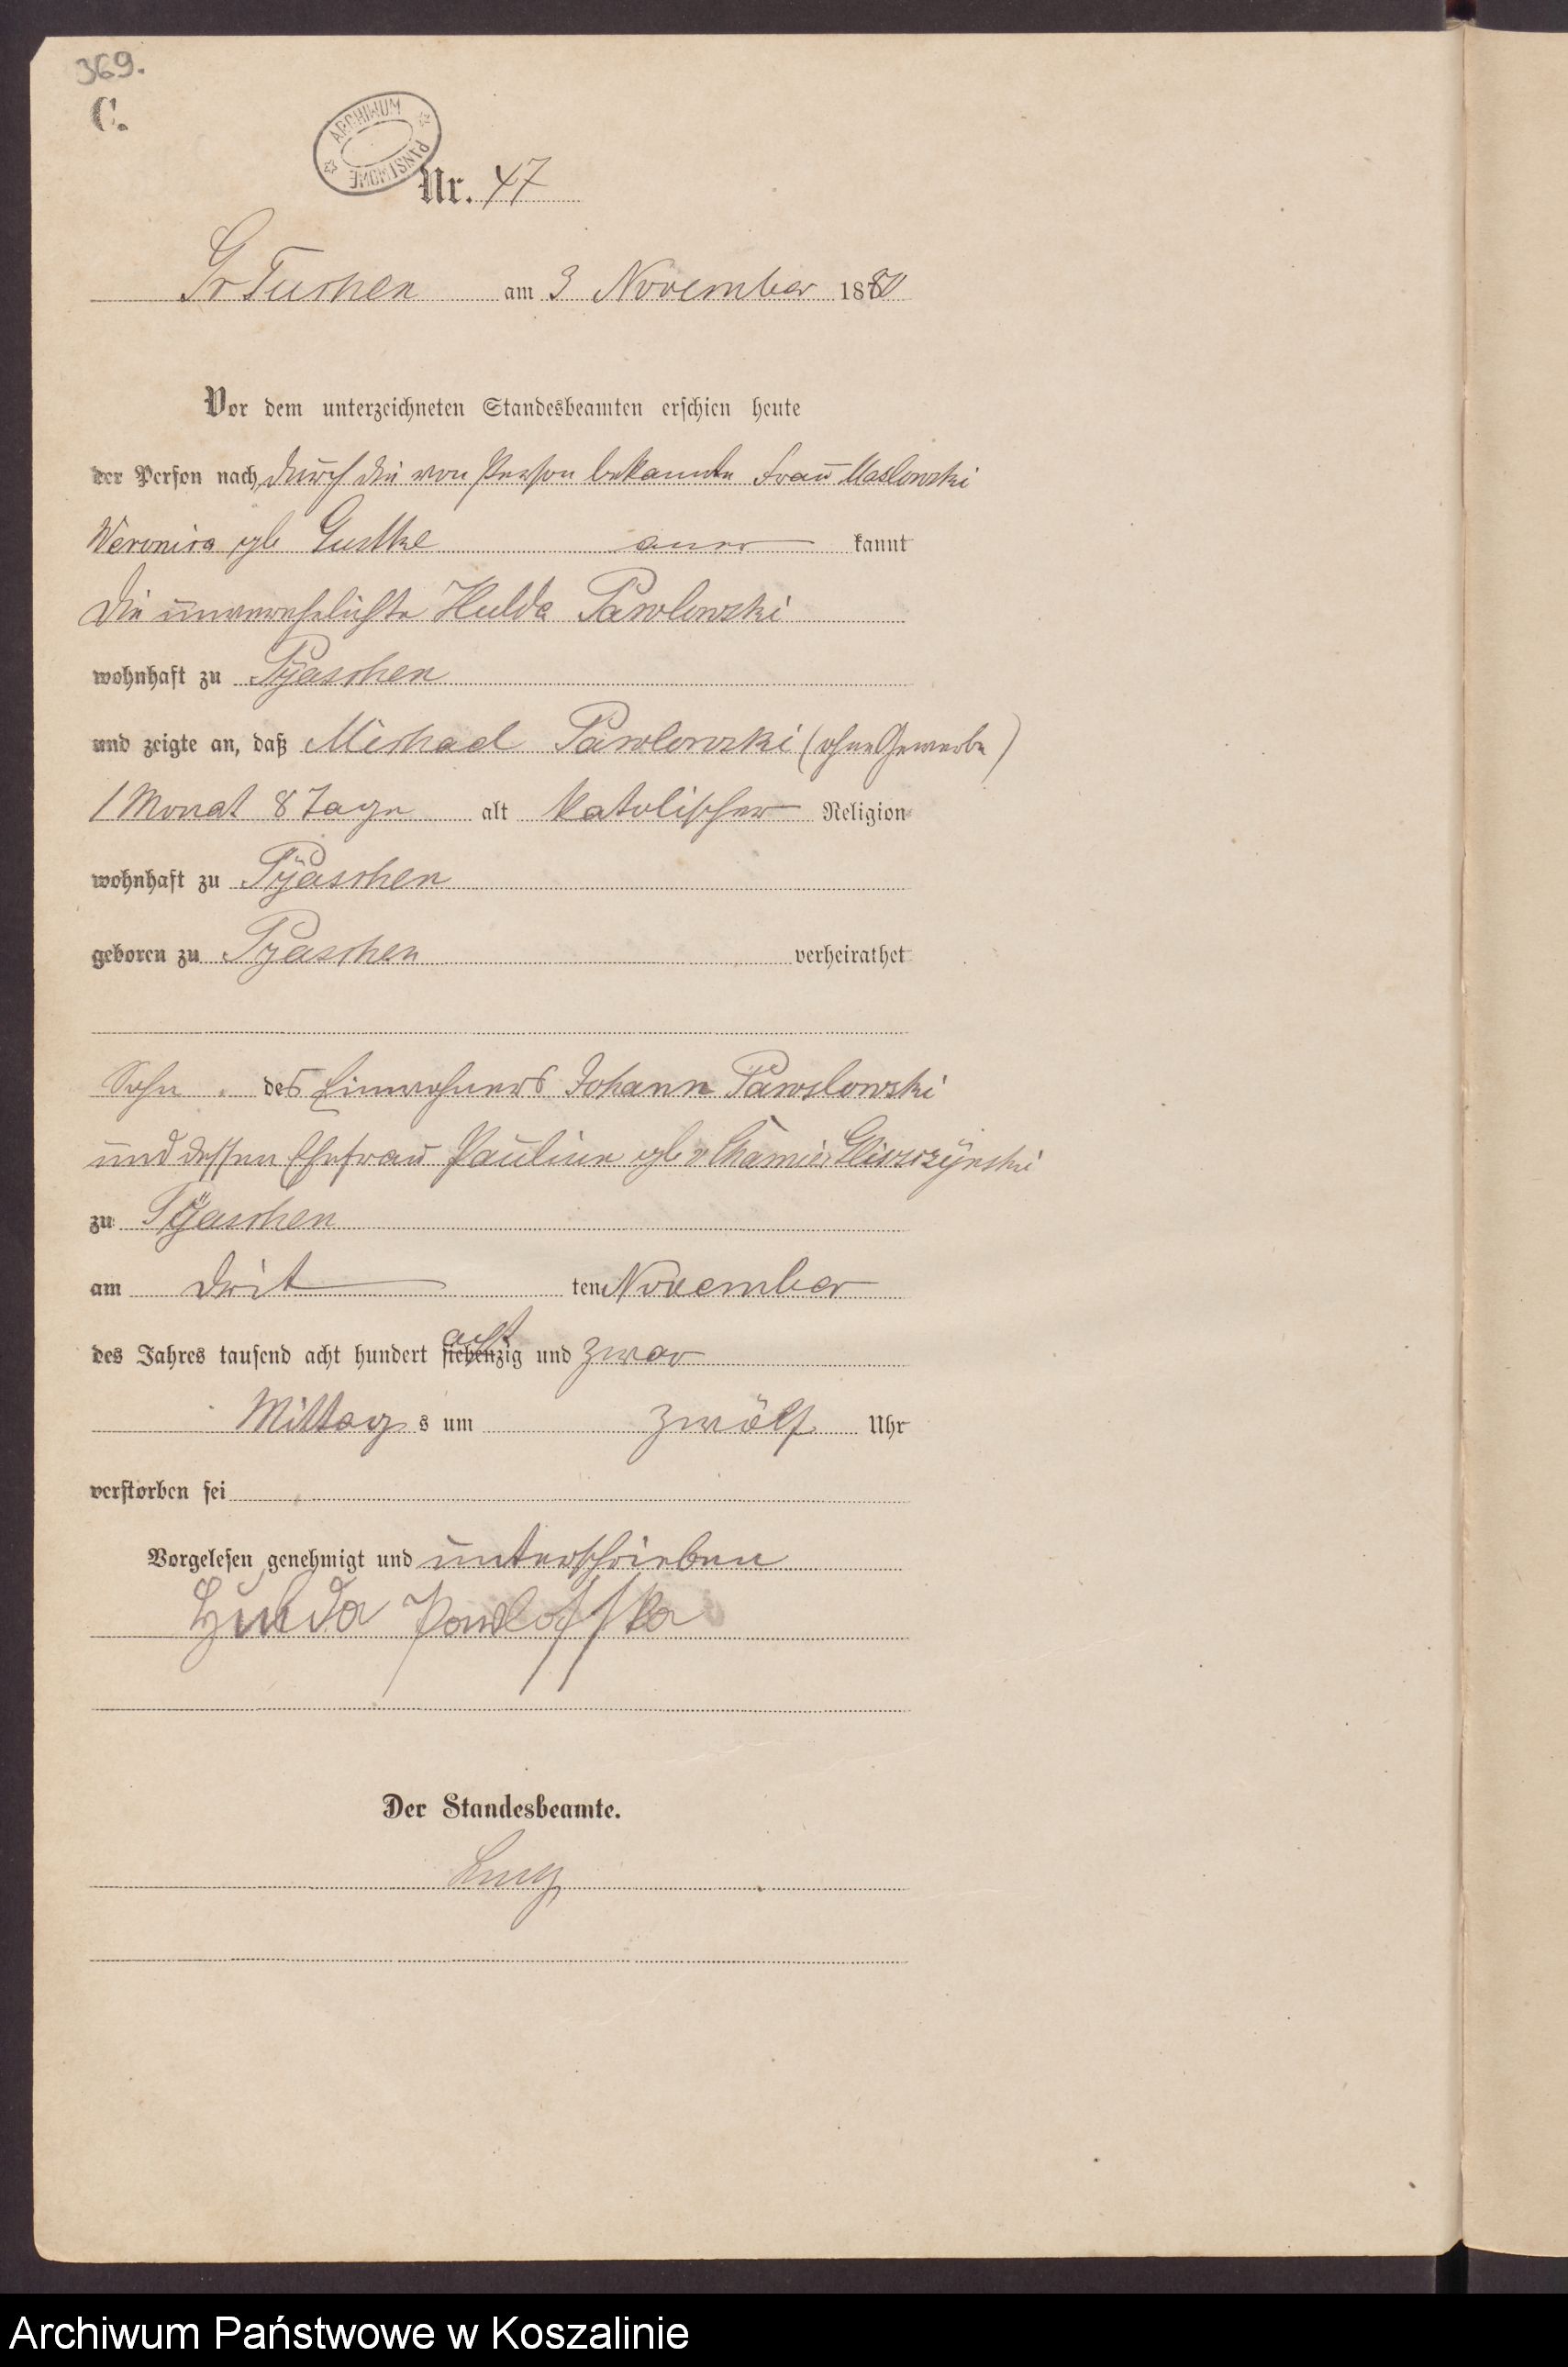 369.
C.
ARCHIWUM PAŃSTWOWE
Nr. 47
Gr Tuchen am 3 November 1880
Vor dem unterzeichneten Standesbeamten erschien heute
der Person nach durch die von Person bekannte Frau Maslowski
Weronica geb Gustke aner kannt
die unverehelichte Hulda Pawlowski
wohnhaft zu Pÿaschen
und zeigte an, daß Michael Pawlowski (ohne Gewerbe)
1 Monat 8 Tage alt katolischer Religion
wohnhaft zu Pÿaschen
geboren zu Pyaschen verheirathet
Sohn des Einwohners Johann Pawslowski
und dessen Ehefrau Pauline geb v Chamier Gliszczÿnski
zu Pÿaschen
am drit ten November
des Jahres tausend acht hundert siebenzig acht und zwar
Mittag s um zwölf Uhr
verstorben sei
Vorgelesen, genehmigt und unterschrieben
Hulda Pawloffska
Der Standesbeamte.
Archiwum Państwowe w Koszalinie